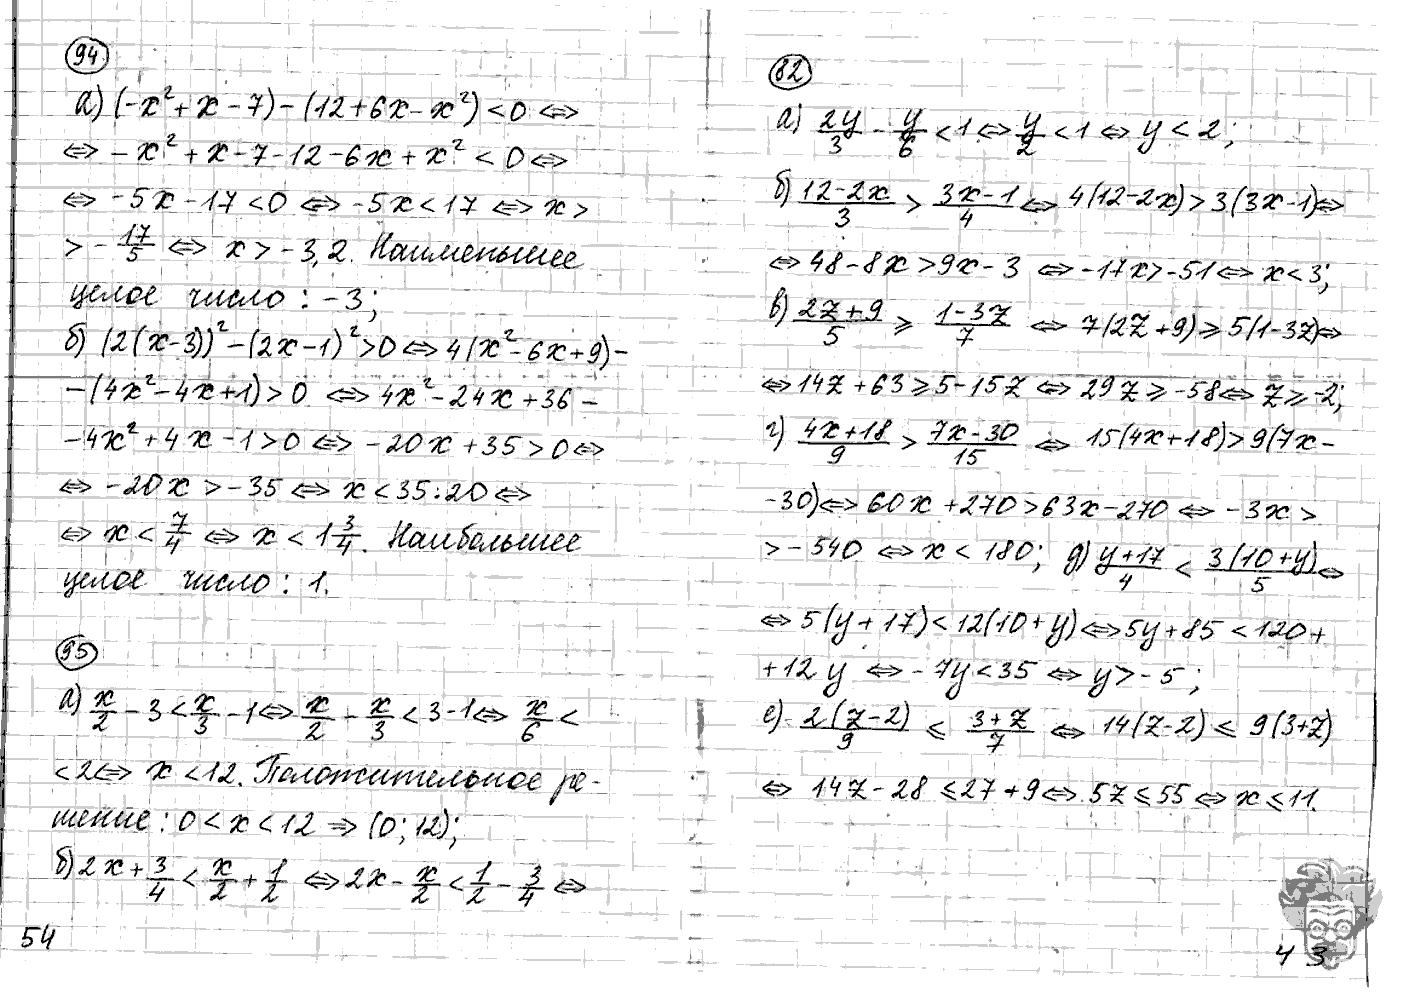 94
а) (-x²+x-7)-(12+6x-x²)<0 ⇔
⇔ -x²+x-7-12-6x+x²<0 ⇔
⇔ -5x-17<0 ⇔ -5x<17 ⇔ x>
>-17/5 ⇔ x>-3,2. Наименьшее
целое число: -3;
б) (2(x-3))²-(2x-1)²>0 ⇔ 4(x²-6x+9)-
-(4x²-4x+1)>0 ⇔ 4x²-24x+36-
-4x²+4x-1>0 ⇔ -20x+35>0 ⇔
⇔ -20x>-35 ⇔ x<35:20 ⇔
⇔ x<7/4 ⇔ x<1 3/4. Наибольшее
целое число: 1.
95
а) x/2-3<x/3-1 ⇔ x/2-x/3<3-1 ⇔ x/6<
<2 ⇔ x<12. Положительное ре-
шение: 0<x<12 ⇒ (0; 12);
б) 2x+3/4<x/2+1/2 ⇔ 2x-x/2<1/2-3/4 ⇔
54
82
а) 2y/3-y/6<1 ⇔ y/2<1 ⇔ y<2;
б) (12-2x)/3>(3x-1)/4 ⇔ 4(12-2x)>3(3x-1) ⇔
⇔ 48-8x>9x-3 ⇔ -17x>-51 ⇔ x<3;
в) (2z+9)/5⩾(1-3z)/7 ⇔ 7(2z+9)⩾5(1-3z) ⇔
⇔ 14z+63⩾5-15z ⇔ 29z⩾-58 ⇔ z⩾-2;
г) (4x+18)/9>(7x-30)/15 ⇔ 15(4x+18)>9(7x-
-30) ⇔ 60x+270>63x-270 ⇔ -3x>
>-540 ⇔ x<180; д) (y+17)/4<3(10+y)/5 ⇔
⇔ 5(y+17)<12(10+y) ⇔ 5y+85<120+
+12y ⇔ -7y<35 ⇔ y>-5;
е) 2(z-2)/9⩽(3+z)/7 ⇔ 14(z-2)⩽9(3+z)
⇔ 14z-28⩽27+9 ⇔ 5z⩽55 ⇔ x⩽11.
43